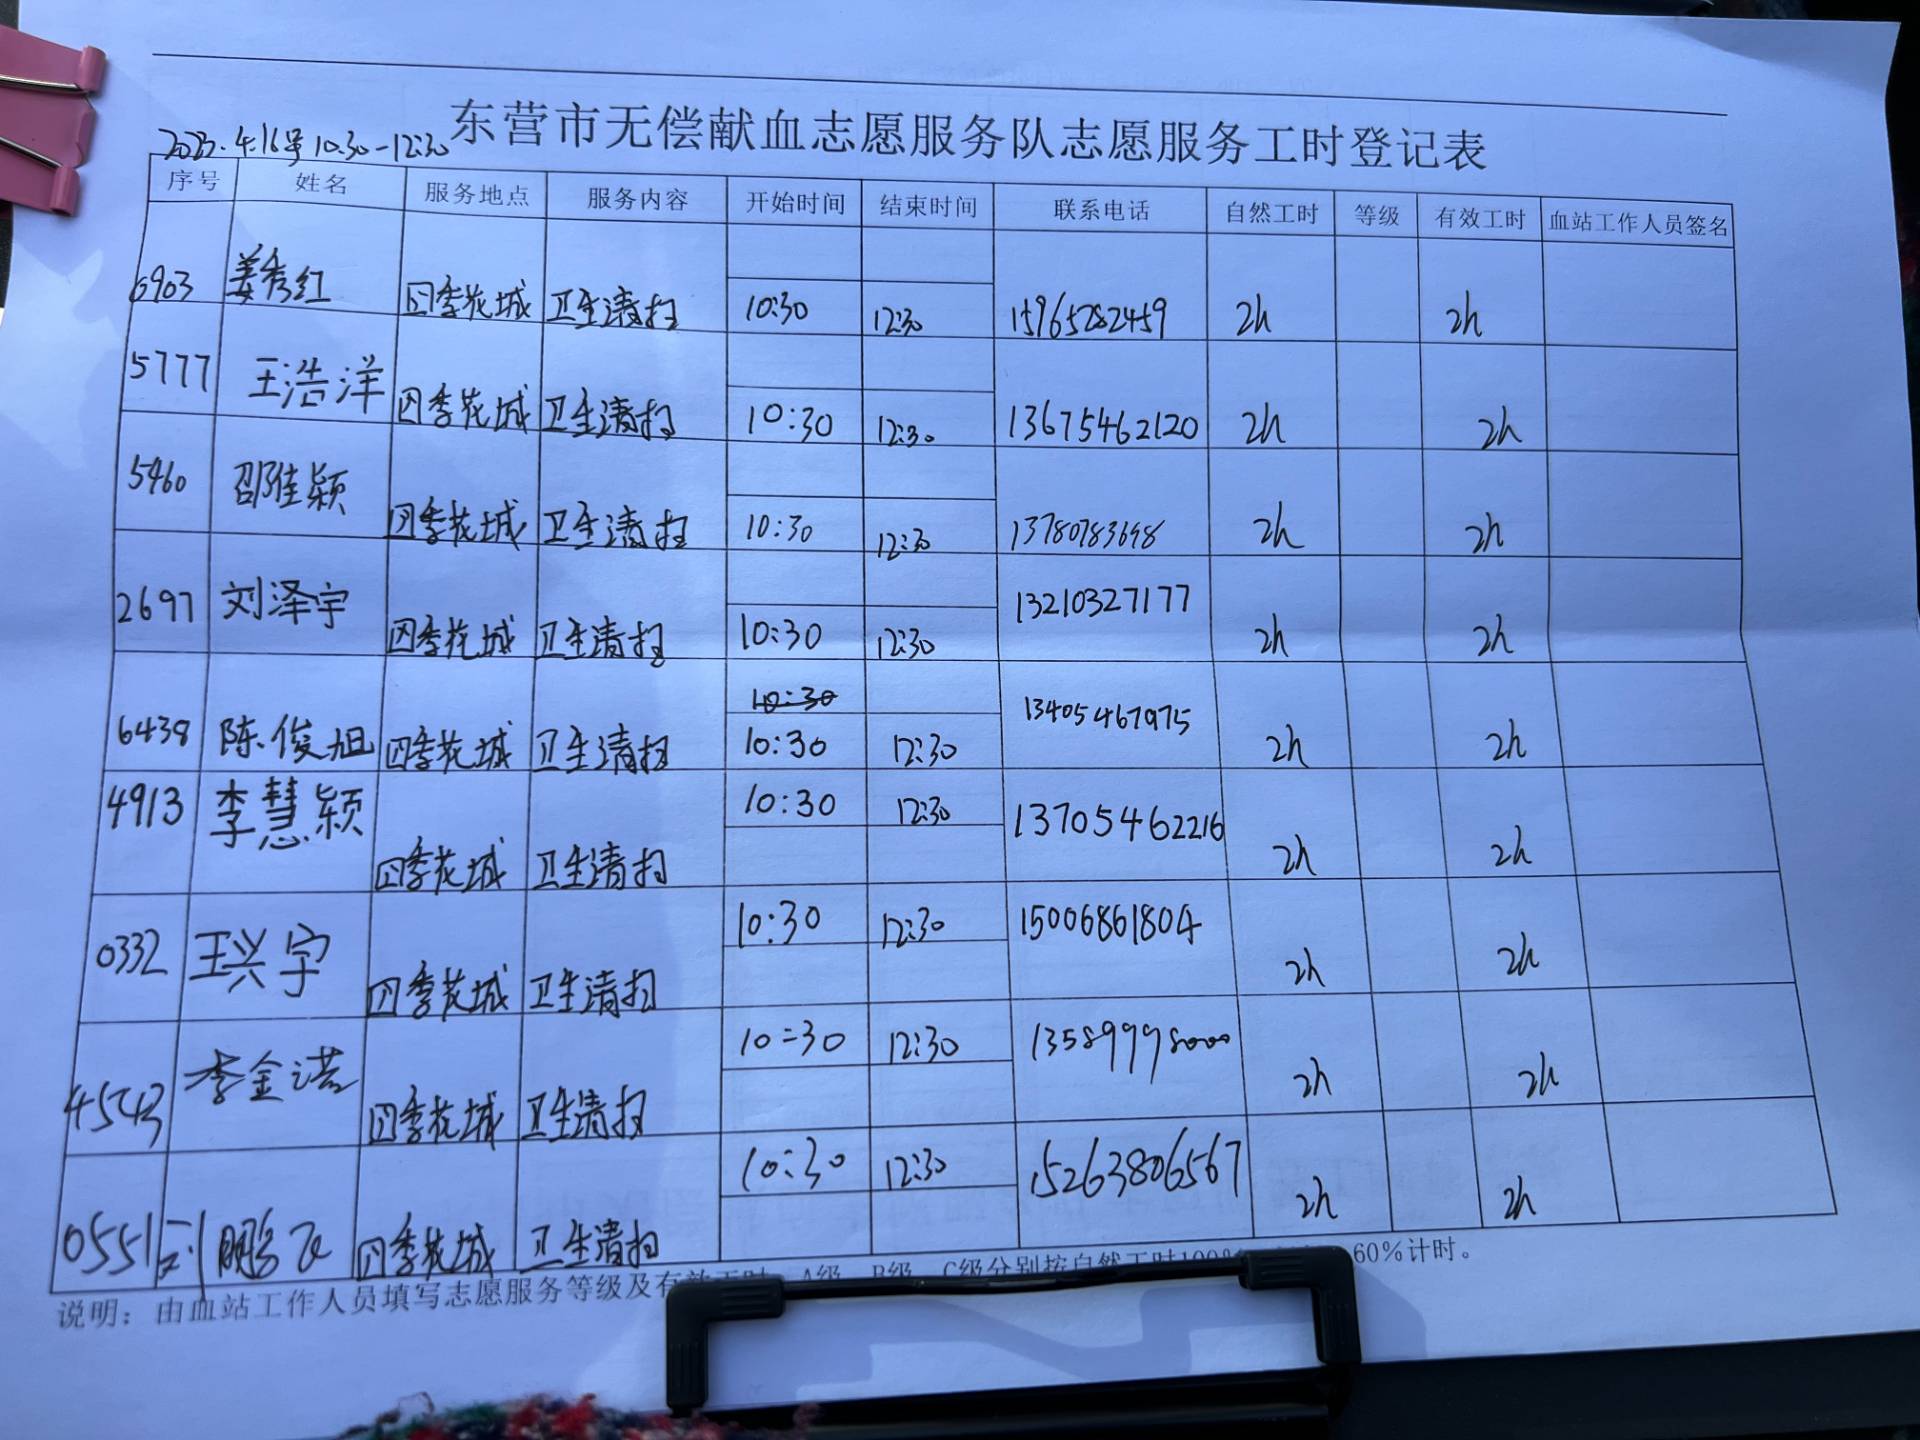 东营市无偿献血志愿服务队志愿服务工时登记表
2023.4.16号 10:30-12:30
序号 姓名 服务地点 服务内容 开始时间 结束时间 联系电话 自然工时 等级 有效工时 血站工作人员签名
6903 姜秀红 四季花城 卫生清扫 10:30 12:30 15965282459 2h 2h
5777 王浩洋 四季花城 卫生清扫 10:30 12:30 13675462120 2h 2h
5460 邵佳颖 四季花城 卫生清扫 10:30 12:30 13780783698 2h 2h
2697 刘泽宇 四季花城 卫生清扫 10:30 12:30 13210327177 2h 2h
10:30
6438 陈俊旭 四季花城 卫生清扫 10:30 12:30 13405467975 2h 2h
4913 李慧颖 四季花城 卫生清扫 10:30 12:30 13705462216 2h 2h
0332 王兴宇 四季花城 卫生清扫 10:30 12:30 15006861804 2h 2h
4543 李金诺 四季花城 卫生清扫 10:30 12:30 13589998000 2h 2h
0551 刘鹏飞 四季花城 卫生清扫 10:30 12:30 15263806567 2h 2h
说明：由血站工作人员填写志愿服务等级及有效工时，A级、B级、C级分别按自然工时100% 60%计时。